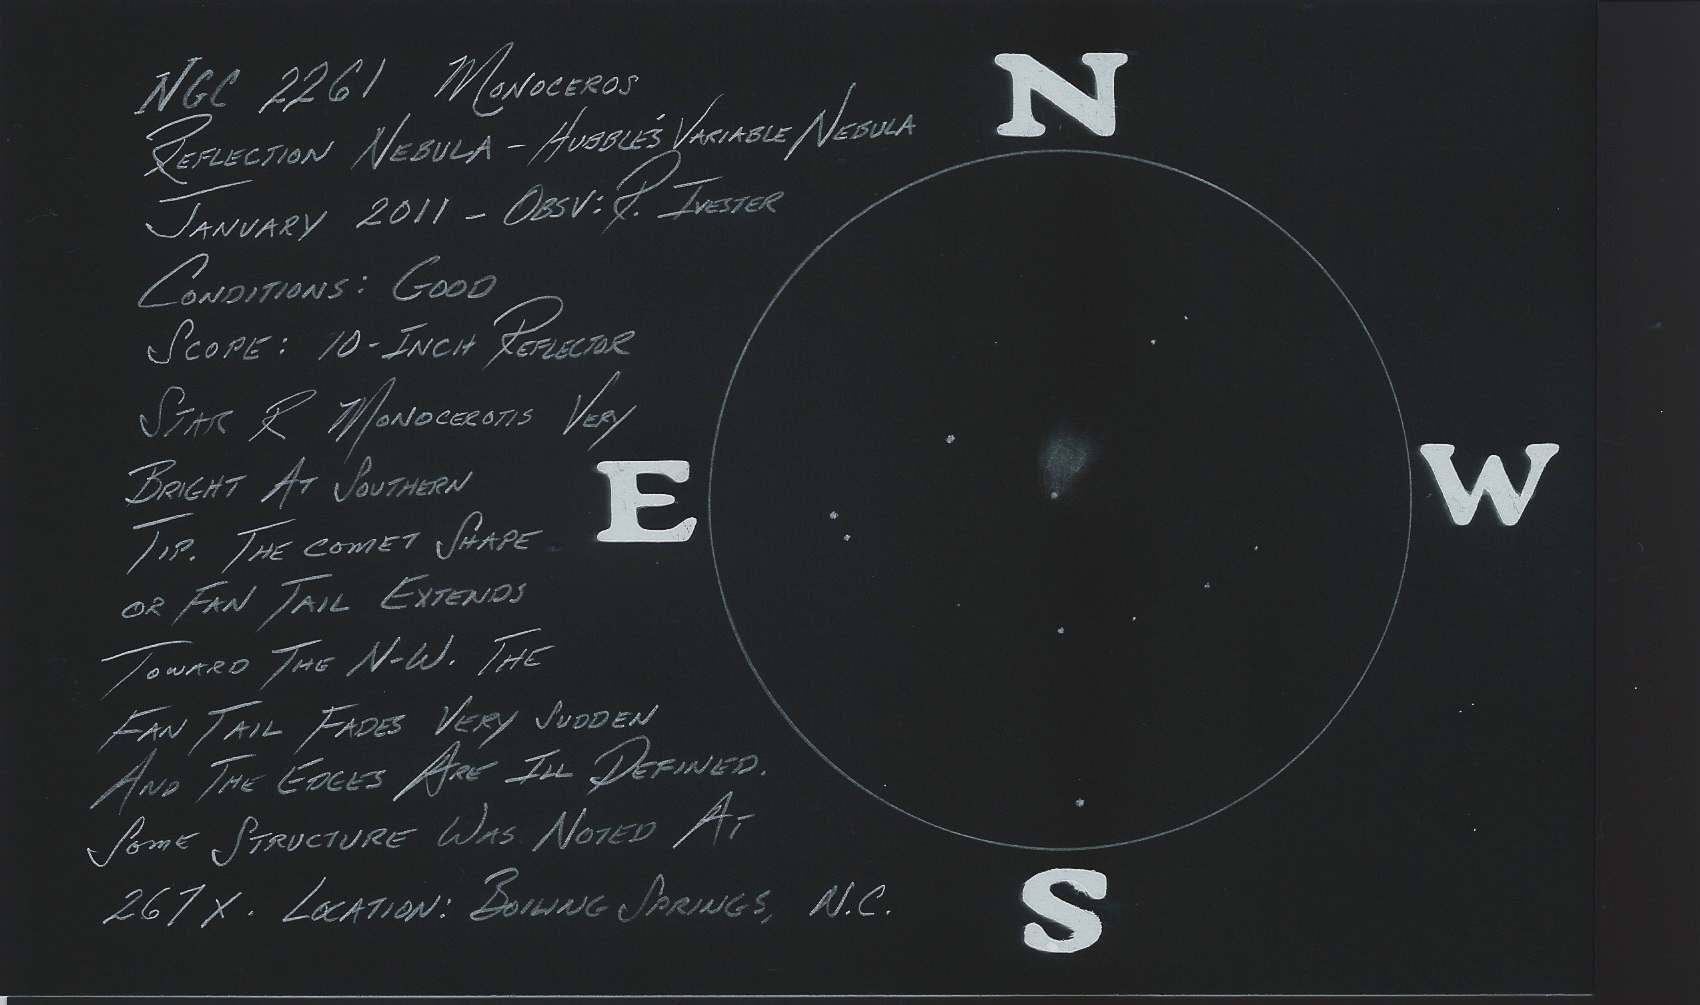 NGC 2261 Monoceros
Reflection Nebula - Hubble's Variable Nebula
January 2011 - Obsv: R. Ivester
Conditions: Good
Scope: 10-Inch Reflector
Star R Monocerotis Very
Bright At Southern
Tip. The comet Shape
or Fan Tail Extends
Toward The N-W. The
Fan Tail Fades Very Sudden
And The Edges Are Ill Defined.
Some Structure Was Noted At
267X. Location: Boiling Springs, N.C.
N
E
W
S